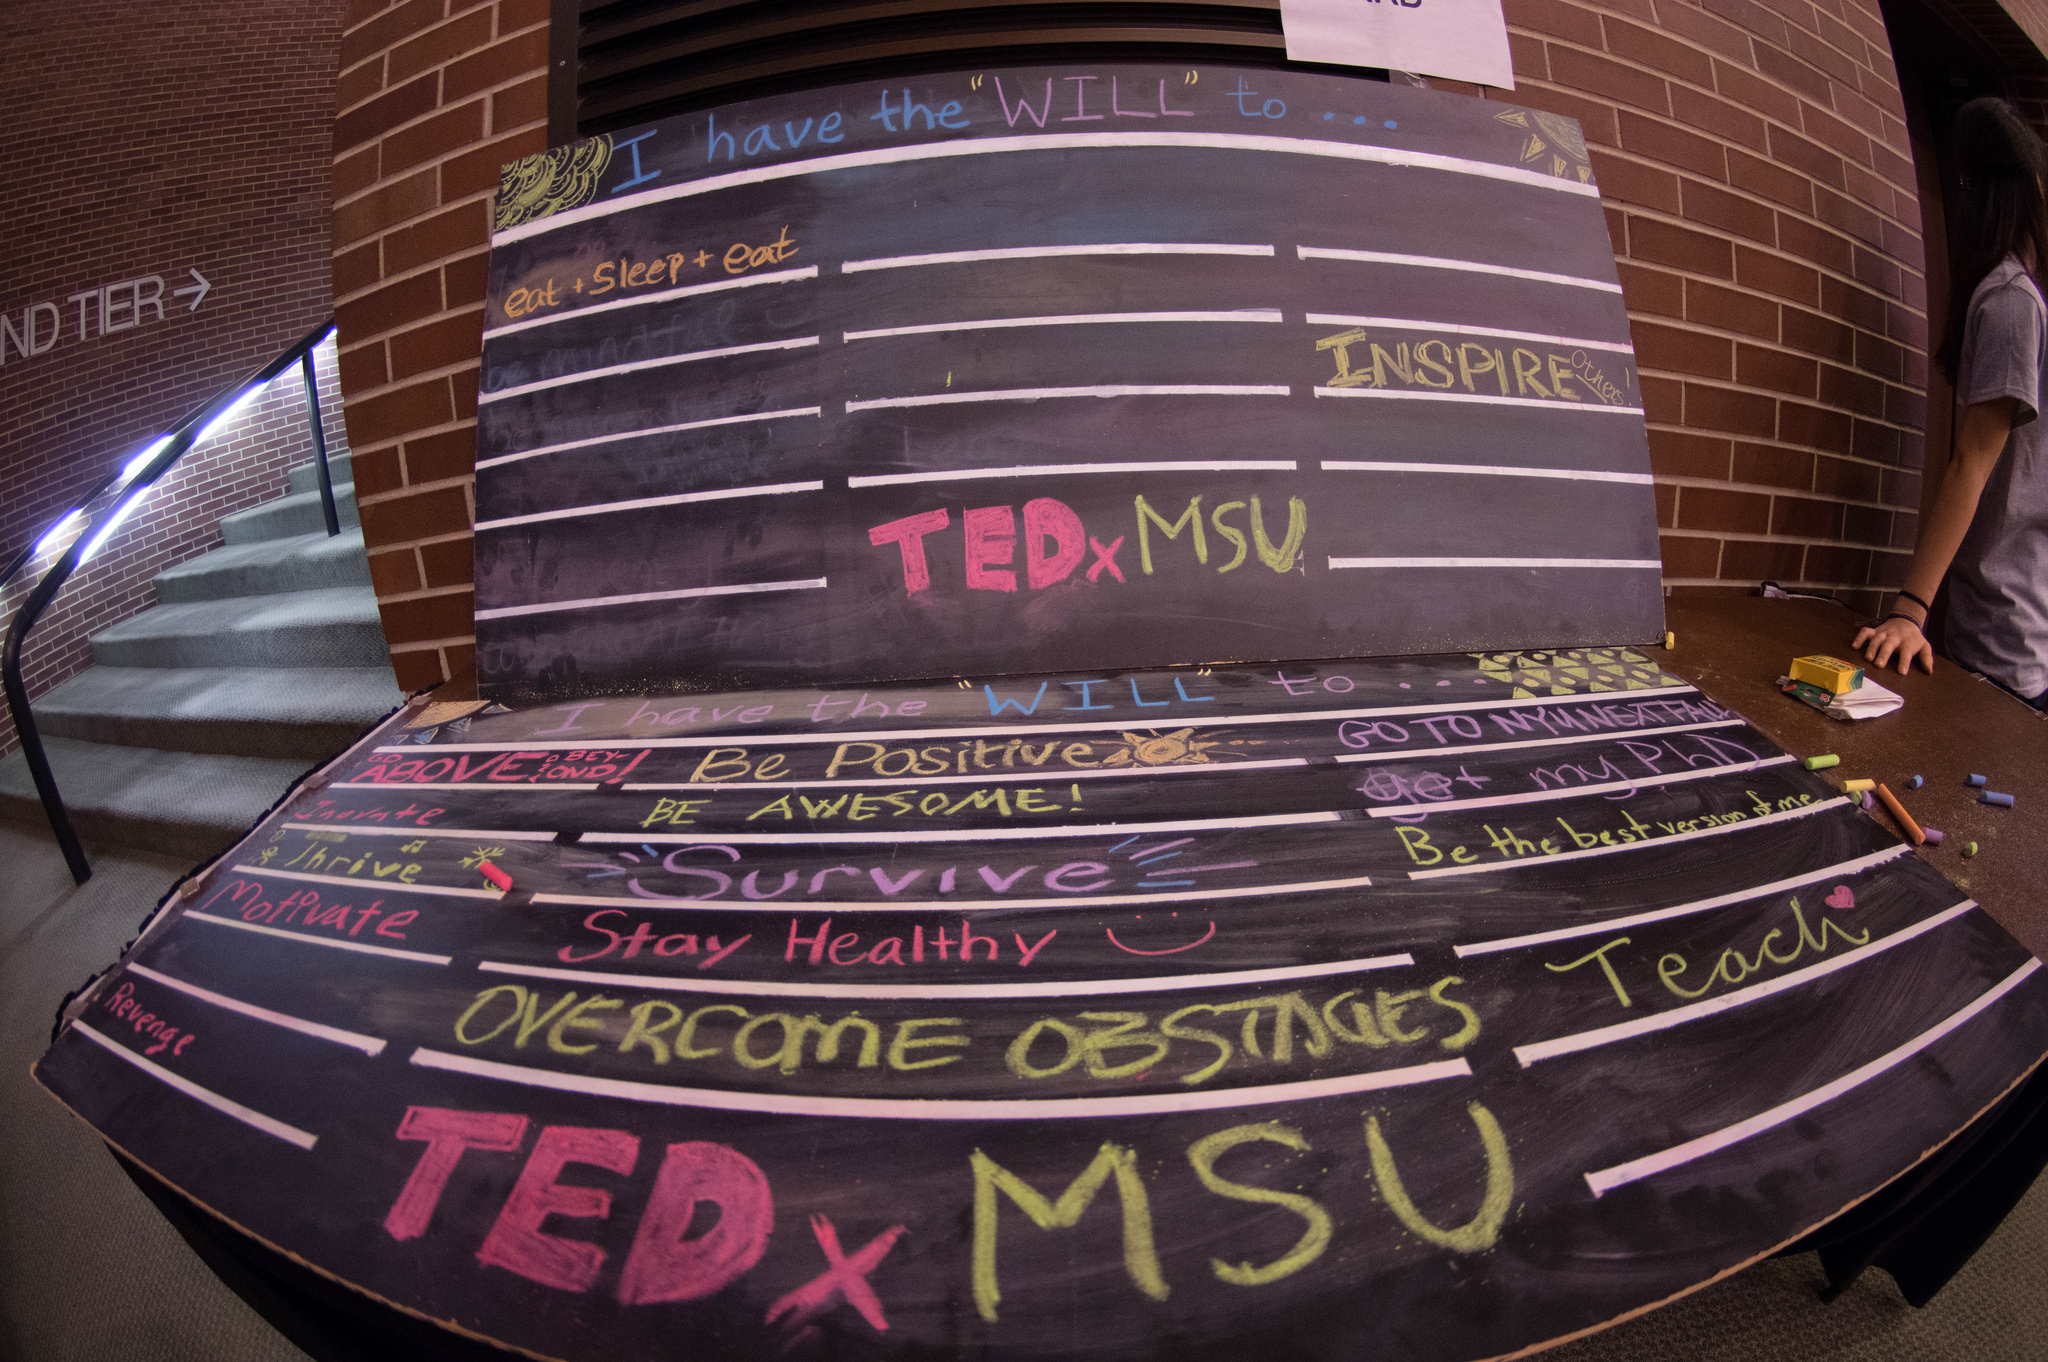 ND TIER →
I have the "WILL" to ...
eat + Sleep + eat
be mindful
INSPIRE others!
TEDxMSU
I have the "WILL" to ....
GO ABOVE & BEYOND!
Inovate
Thrive
Motivate
Revenge
Be Positive
BE AWESOME!
Survive
Stay Healthy
OVERCOME OBSTACLES
GO TO NYU NEXT FALL
get my PhD
Be the best version of me
Teach
TEDxMSU